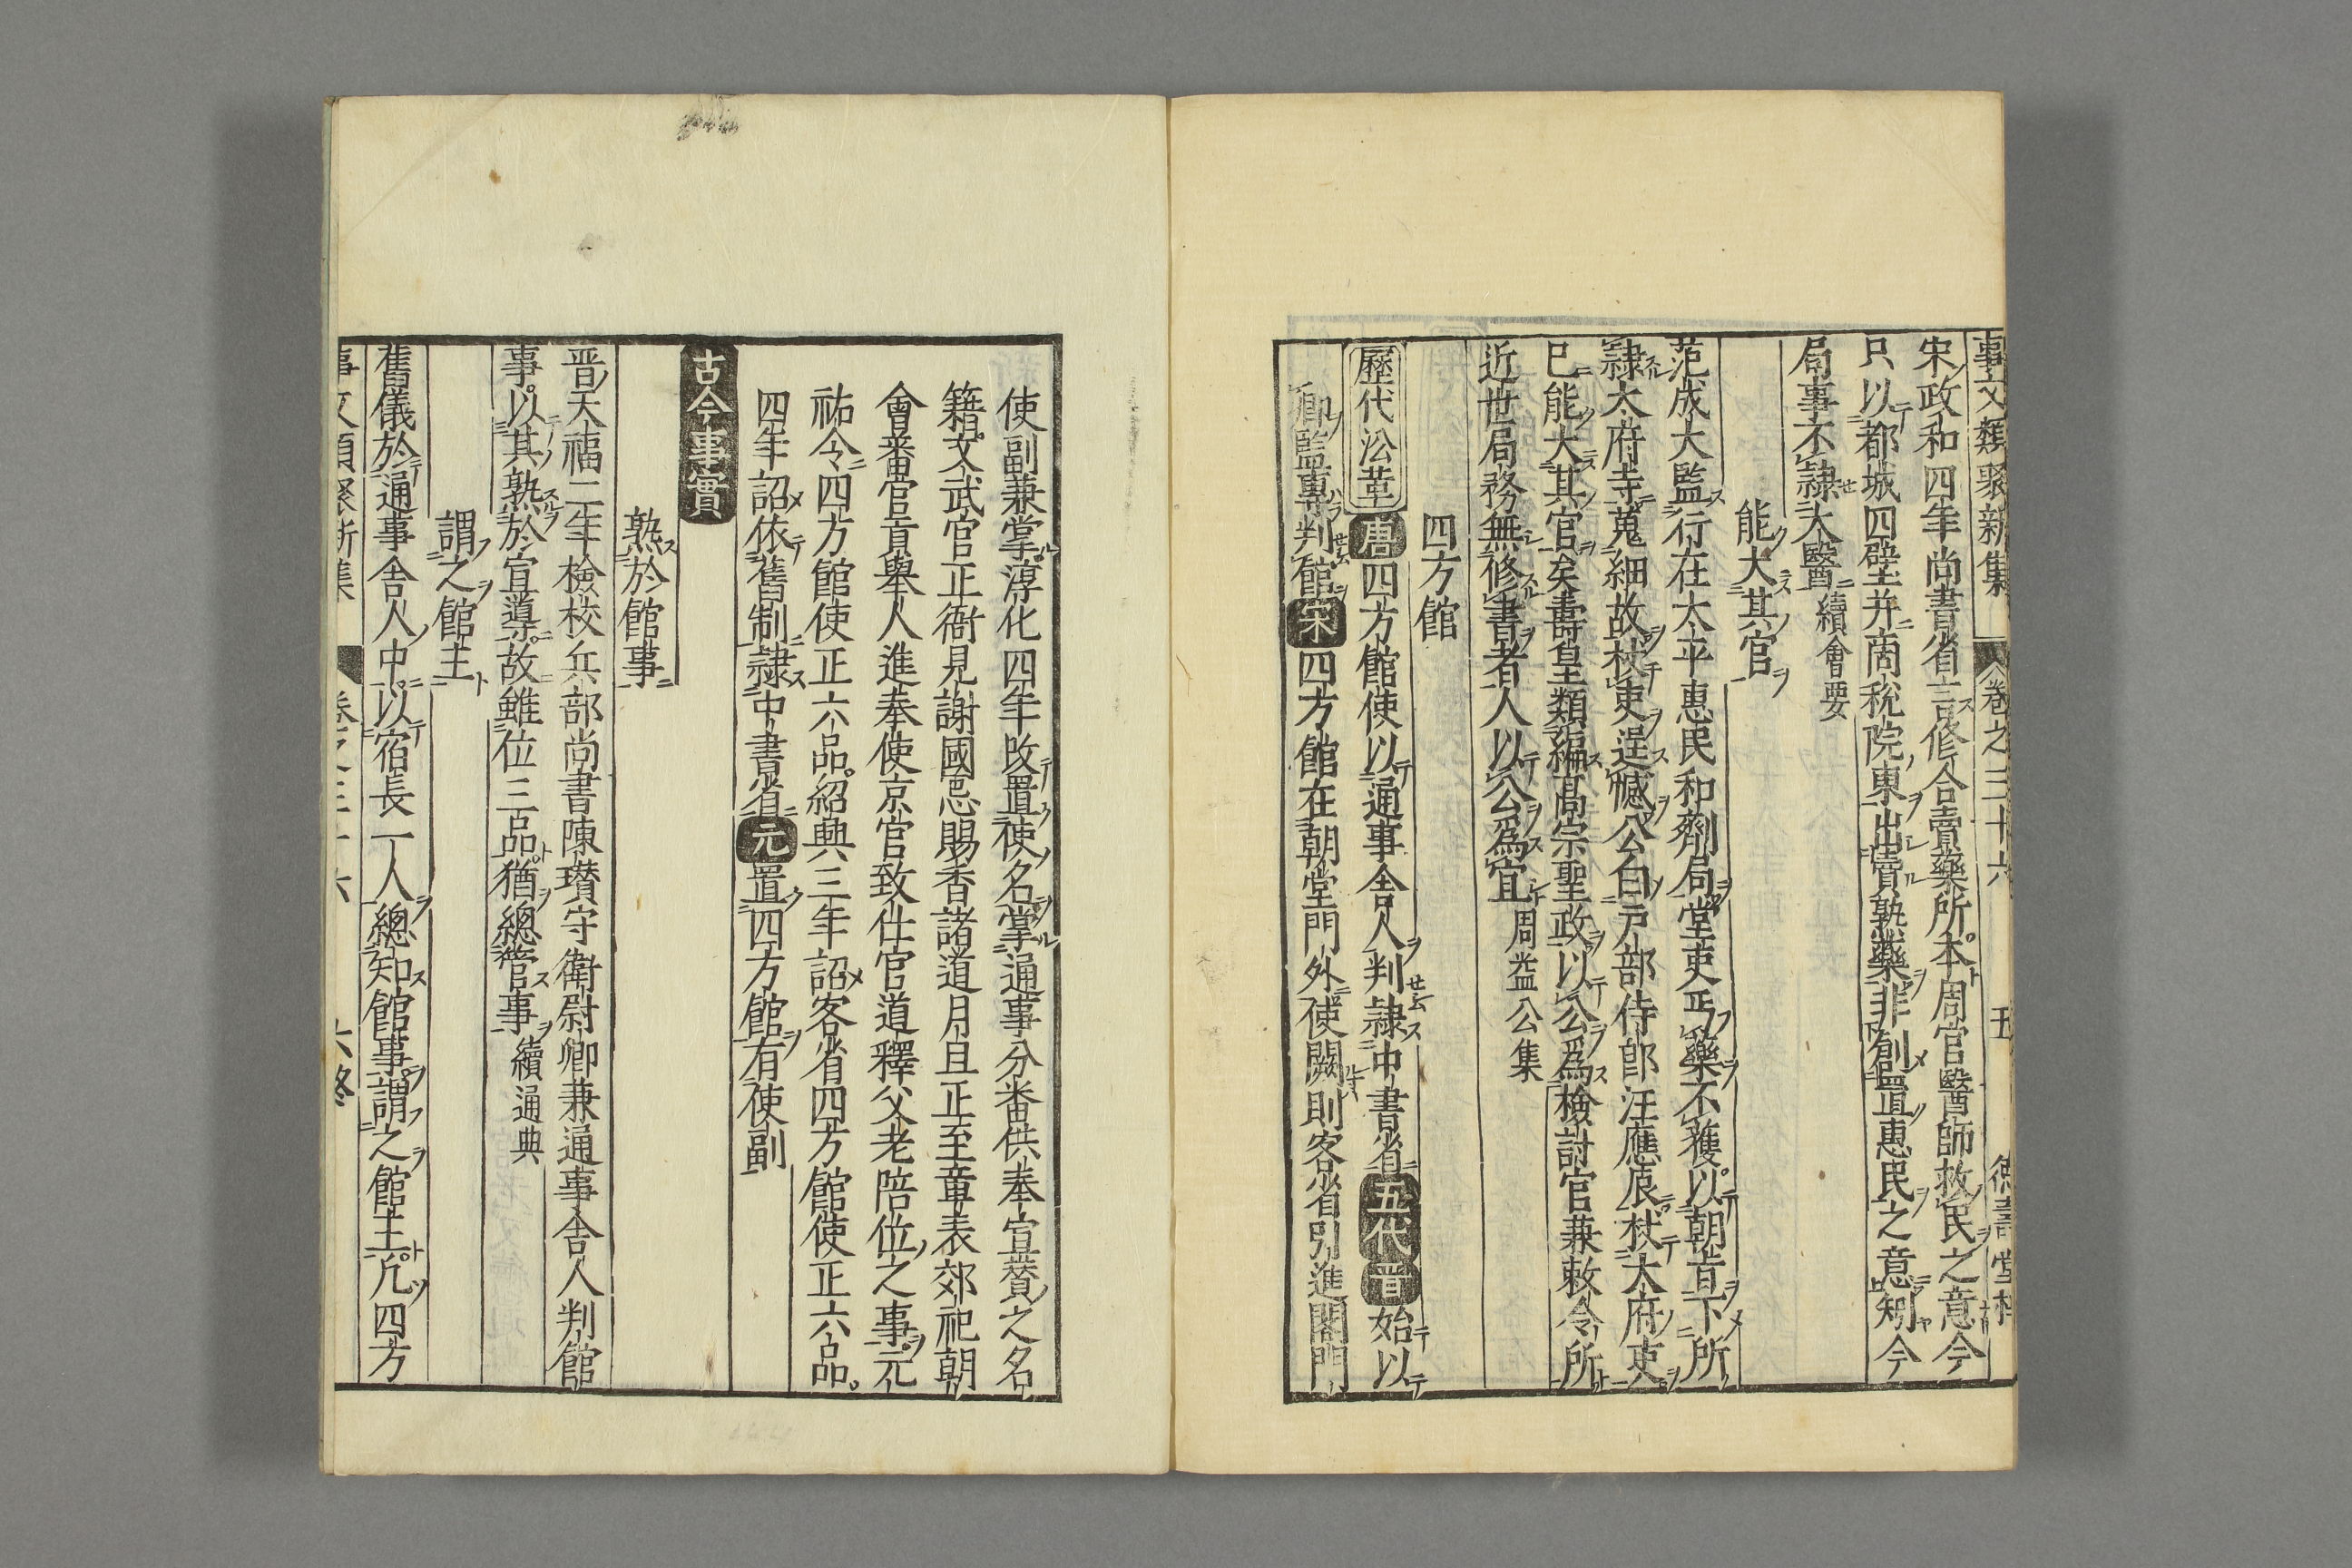 事文類聚新集 卷之三十六 五 德壽堂梓
宋政和四年尚書省言修合賣藥所本周官醫師救民之意今
只以都城四壁并商稅院東出賣熟藥非創置惠民之意矧今
局事不隸太醫續會要
能大其官
范成大監行在太平惠民和劑局堂吏丐藥不獲以朝旨下所
隸太府寺蒐細故杖吏逞憾公白戶部侍郎汪應辰杖太府吏
已能大其官矣壽皇類編高宗聖政以公爲檢討官兼敕令所
近世局務無修書者人以公爲宜周益公集
四方館
歷代沿革 唐四方館使以通事舍人判隸中書省五代晉始以
卿監專判館宋四方館在朝堂門外使闕則客省引進閤門
使副兼掌淳化四年改置使名掌通事分番供奉宣贊之名
籍文武官正衙見謝國忌賜香諸道月旦正至章表郊祀朝
會番官貢舉人進奉使京官致仕官道釋父老陪位之事元
祐令四方館使正六品紹興三年詔客省四方館使正六品
四年詔依舊制隸中書省元置四方館有使副
古今事實
熟於館事
晋天福二年檢校兵部尚書陳瓚守衛尉卿兼通事舍人判館
事以其熟於宣導故雖位三品猶總管事續通典
謂之館主
舊儀於通事舍人中以宿長一人總知館事謂之館主凡四方